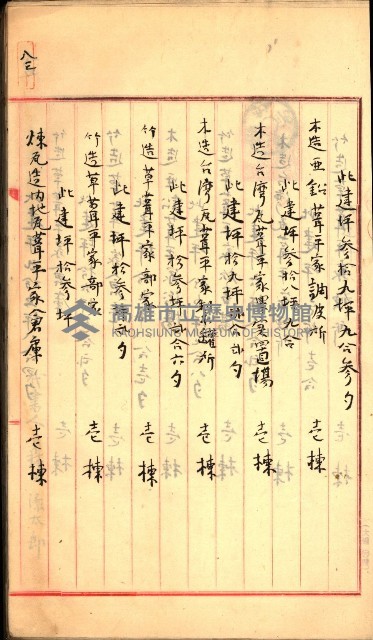 八三
此建坪参拾九坪九合参夕
木造亜鉛葺平家調度所 壱棟
此建坪参拾八坪九合
木造台湾瓦葺平家 置場 壱棟
此建坪拾九坪 夕
木造台湾瓦葺平家 所 壱棟
此建坪拾参坪 合六夕
竹造草葺平家部家 壱棟
此建坪拾参 夕
竹造草葺平家部家 壱棟
此建坪拾参坪
煉瓦造内地瓦葺平家倉庫 壱棟
高雄市立歷史博物館
KAOHSIUNG MUSEUM OF HISTORY